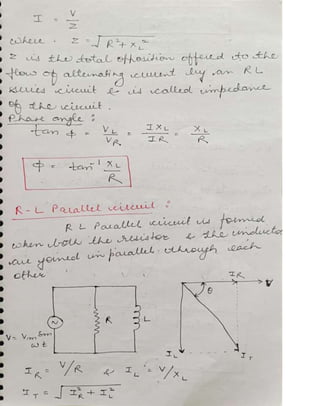 I = V/Z
where . Z = √R²+X_L²
Z is the total opposition offered to the
flow of alternating current by an RL
series circuit & is called impedance
of the circuit.
Phase angle :
tan ϕ = V_L/V_R = IX_L/IR = X_L/R
ϕ = tan⁻¹ X_L/R
R-L Parallel circuit :
RL Parallel circuit is formed
when both the resistor & the inductor
are joined in parallel through each
other
I_R
V
θ
R
L
V = Vm sin ωt
I_L
I_T
I_R = V/R & I_L = V/X_L
I_T = √I_R² + I_L²